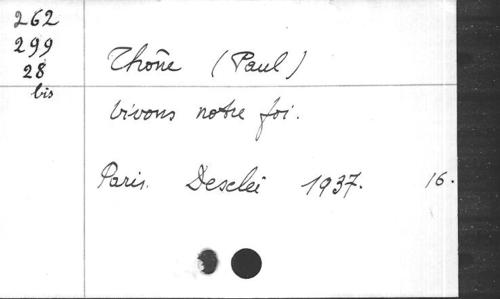 262
299
28
bis
Thône (Paul)
Vivons notre foi.
Paris. Desclée 1937. 16.